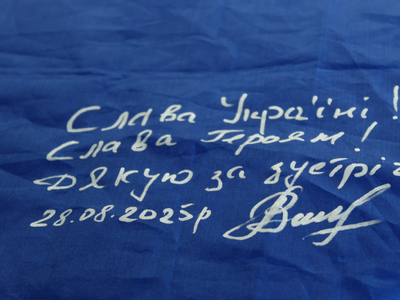 Слава Україні!
Слава Героям!
Дякую за зустріч
28.08.2025р